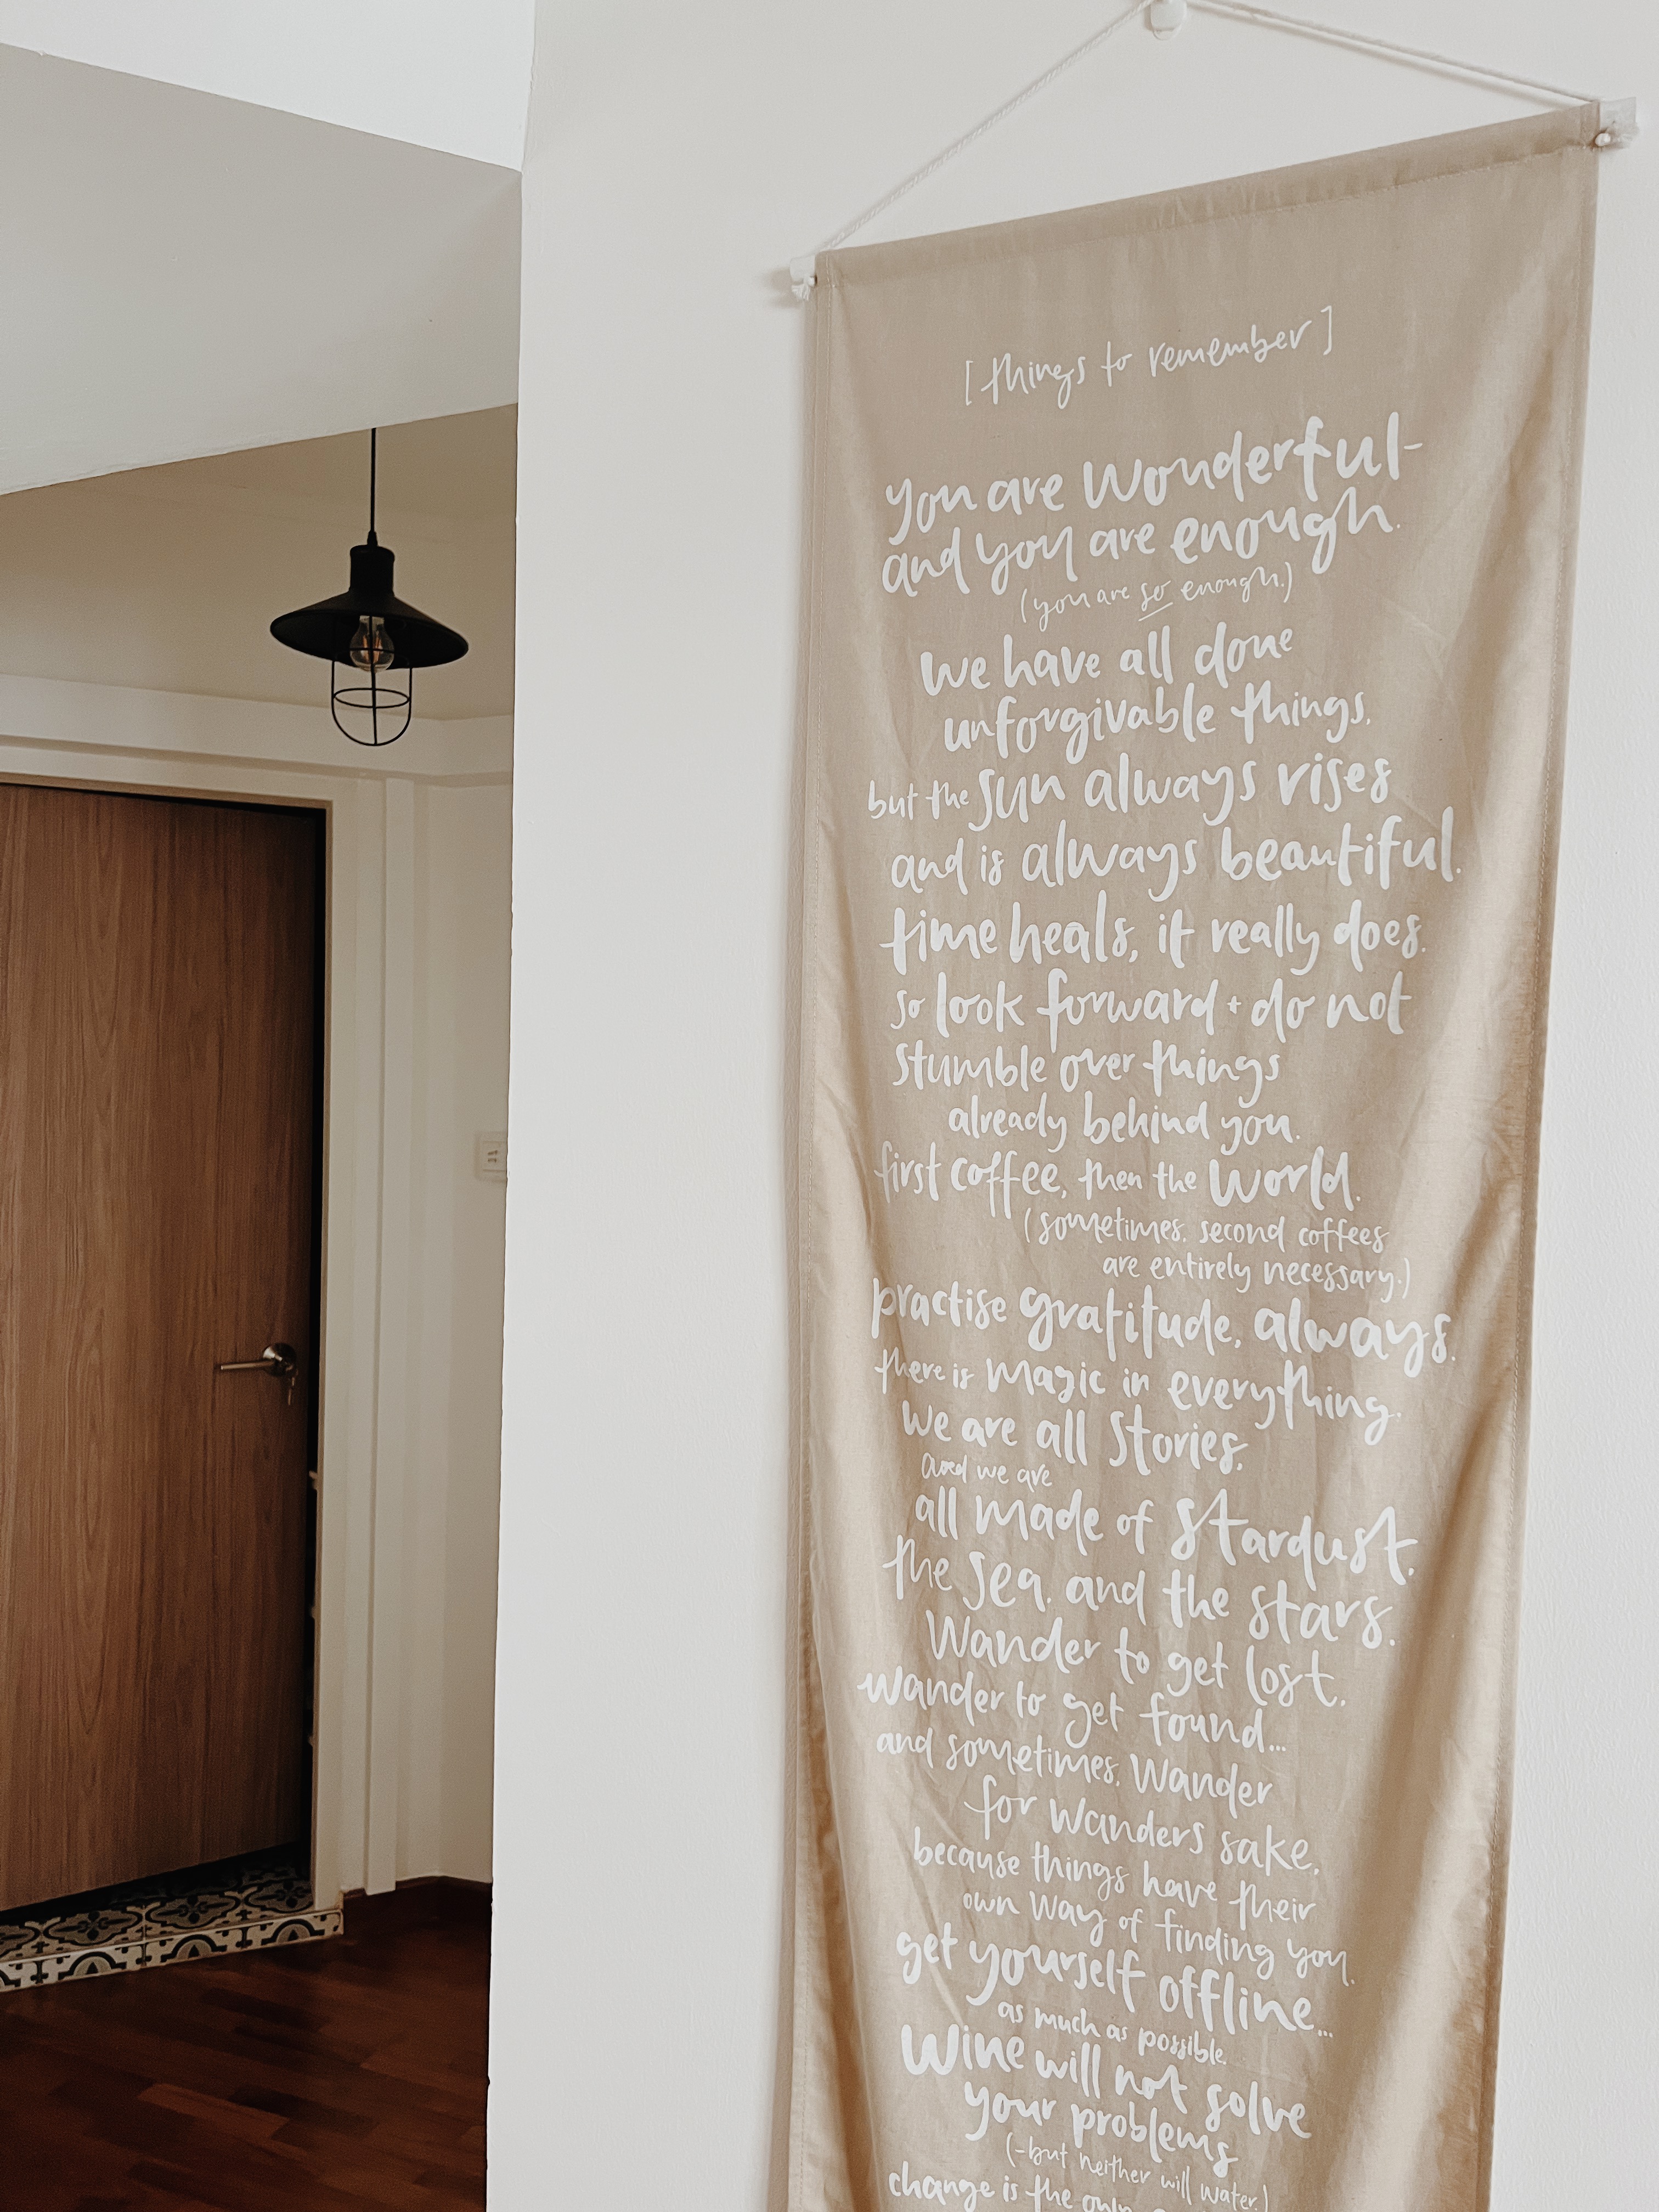 [things to remember]
you are wonderful-
and you are enough.
(you are so enough.)
we have all done
unforgivable things.
but the sun always rises
and is always beautiful.
time heals, it really does.
so look forward + do not
stumble over things
already behind you.
first coffee, then the world.
(sometimes, second coffees
are entirely necessary.)
practise gratitude, always.
there is magic in everything.
we are all stories,
and we are
all made of stardust,
the sea, and the stars.
Wander to get lost,
wander to get found...
and sometimes, wander
for wanders sake,
because things have their
own way of finding you.
get yourself offline...
as much as possible.
Wine will not solve
your problems
(-but neither will water.)
change is the only